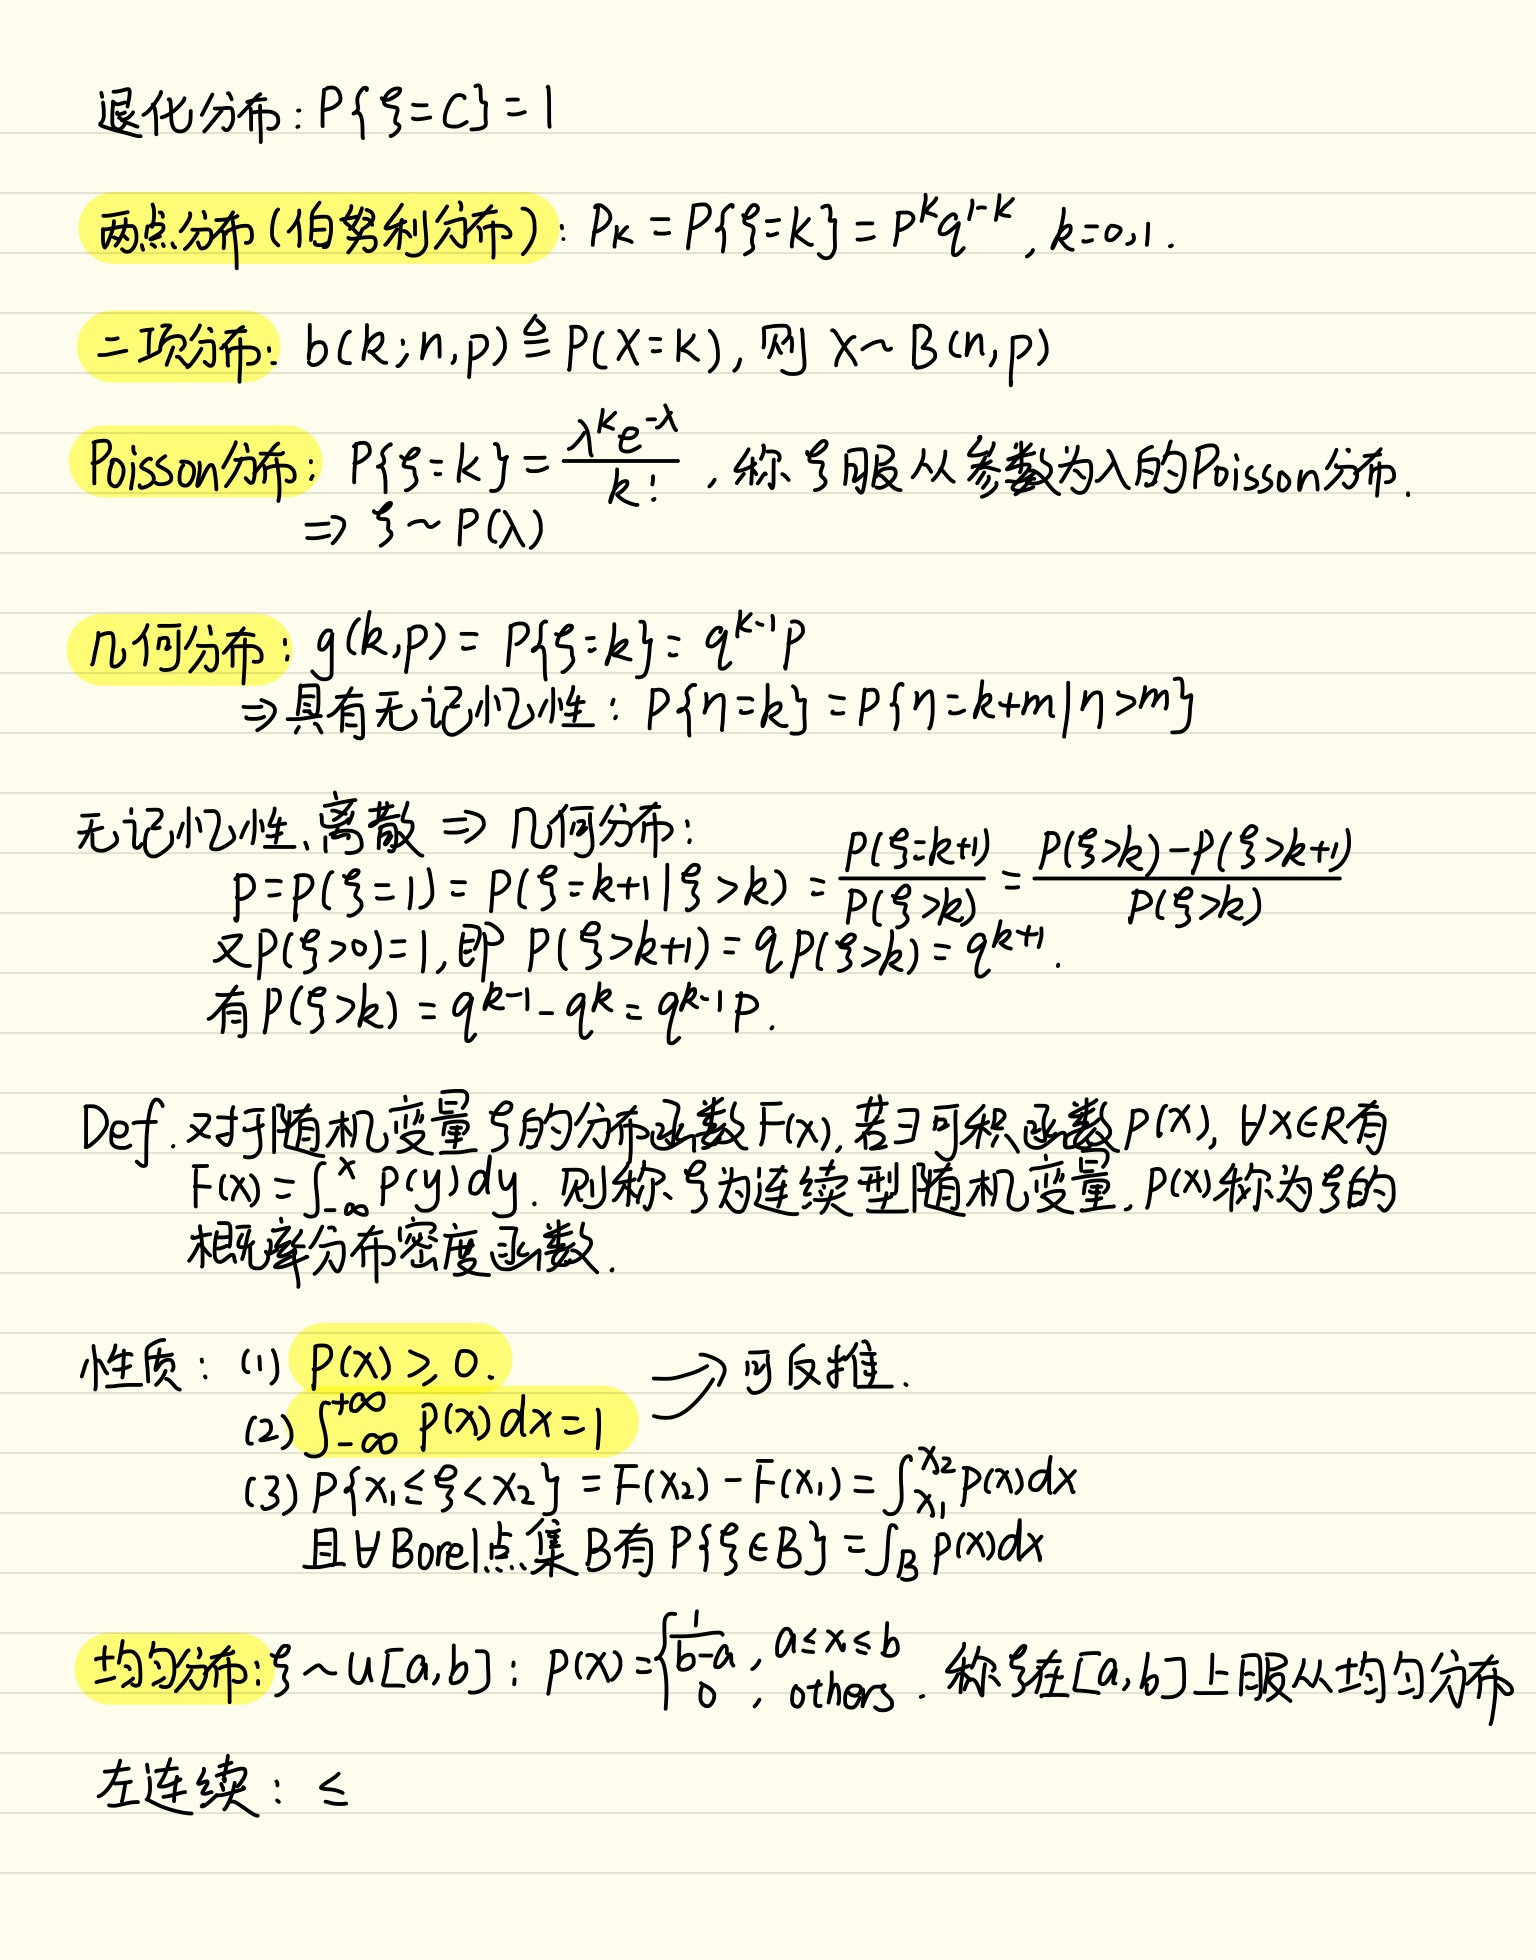 退化分布：P{ξ=C}=1
两点分布(伯努利分布)：P_K = P{ξ=K} = P^K q^{1-K}, k=0,1.
二项分布：b(k;n,p) ≜ P(X=K), 则 X~B(n,p)
Poisson分布：P{ξ=k} = λ^K e^{-λ} / k!，称ξ服从参数为λ的Poisson分布.
⇒ ξ~P(λ)
几何分布：g(k,p) = P{ξ=k} = q^{k-1}P
⇒具有无记忆性：P{η=k} = P{η=k+m|η>m}
无记忆性、离散 ⇒ 几何分布：
P=P(ξ=1) = P(ξ=k+1|ξ>k) = P(ξ=k+1) / P(ξ>k) = (P(ξ>k)-P(ξ>k+1)) / P(ξ>k)
又P(ξ>0)=1, 即 P(ξ>k+1) = qP(ξ>k) = q^{k+1}.
有P(ξ>k) = q^{k-1} - q^k = q^{k-1}P.
Def. 对于随机变量ξ的分布函数F(x), 若∃可积函数P(x), ∀x∈R有
F(x) = ∫_{-∞}^{x} P(y)dy. 则称ξ为连续型随机变量. P(x)称为ξ的
概率分布密度函数.
性质：(1) P(x)≥0. → 可反推.
(2) ∫_{-∞}^{+∞} P(x)dx=1
(3) P{x₁≤ξ<x₂} = F(x₂)-F(x₁) = ∫_{x₁}^{x₂} P(x)dx
且∀Borel点集B有 P{ξ∈B} = ∫_B P(x)dx
均匀分布：ξ~U[a,b]：P(x)={ 1/(b-a), a≤x≤b ; 0, others. 称ξ在[a,b]上服从均匀分布
左连续：≤